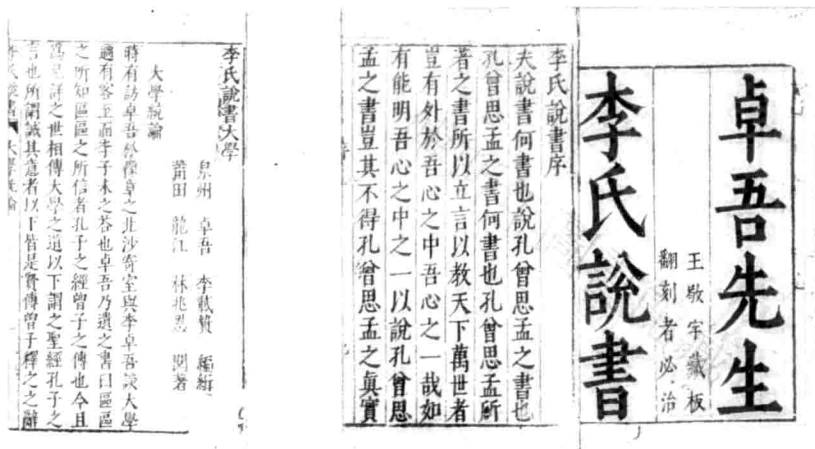 卓吾先生
王敬宇藏板
翻刻者必治
李氏說書
李氏說書序
夫說書何書也說孔曾思孟之書也
孔曾思孟之書何書也孔曾思孟所
著之書所以立言以教天下萬世者
豈有外於吾心之中吾心之一哉如
有能明吾心之中之一以說孔曾思
孟之書豈其不得孔曾思孟之眞實
李氏說書大學
泉州 卓吾 李載贄 編輯
莆田 龍江 林兆恩 閱著
大學統論
時有訪卓吾於 之北沙寄室與李卓吾談大學
適有客至而李子未之荅也卓吾乃遺之書曰區區
之所知區區之所信者孔子之經曾子之傳也今且
詳之世相傳大學之道以下謂之聖經孔子之
言也所謂誠其意者以下皆是賢傳曾子釋之之辭